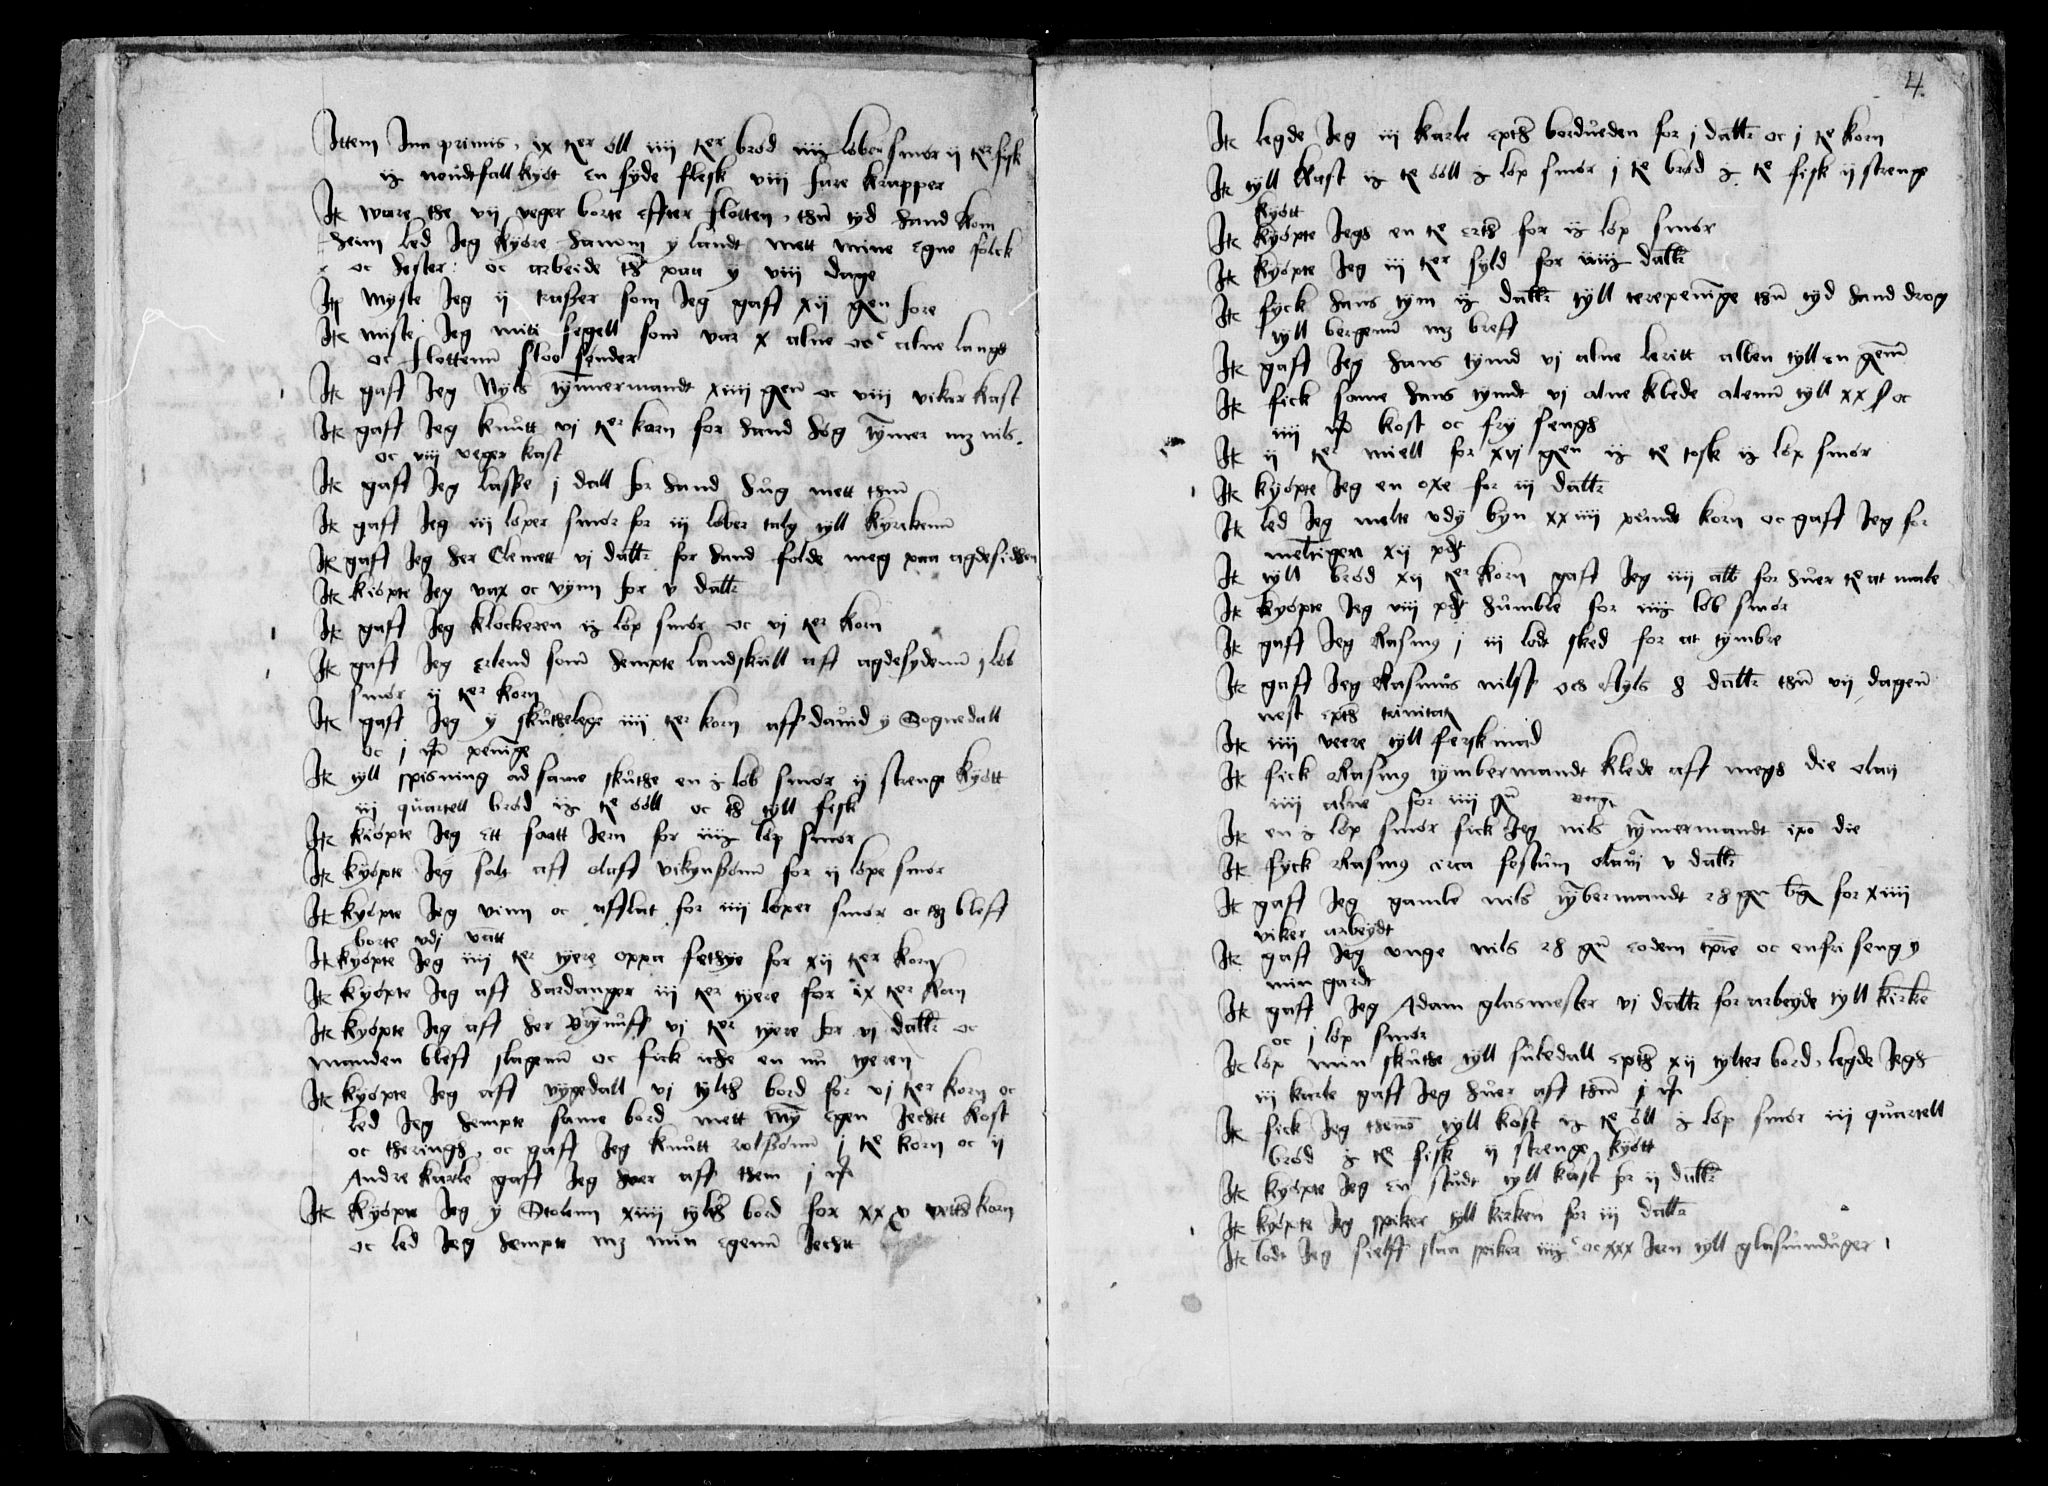 Ittem Inn primis, ix ter öll iiij ter bröd iiij löber smör ij ter fysk
ij noudtfall kyöt en syde flesk viij fare kropper
Itē ware the vij veger borte effter flotten, thn̄ tyd hand kom
heim led Jeg kyöre hanom y landt mett mine egne folck
oc hester: oc arbeide th paa y viij dage
Itē myste Jeg ij trasser som Jeg gaff xij gēn fore
Itē miste Jeg mitt segell som var x alne oc alne langs
oc flottenn sloo sender
Itē gaff Jeg Nyls tymmermandt xiiij gēn oc viij viker kast
Itē gaff Jeg knutt vj ter korn for hand hög tymer mz nils.
oc viij veger kast
Itē gaff Jeg lasse j dall for hand hug mett thm̄
Itē gaff Jeg iij löper smör for iij löber taly tyll kyrckenn
Itē gaff Jeg her Clemett vj dallr for hand folde meg paa agdesidhen
Itē kiöpte Jeg vax oc vynn for v dallr
Itē gaff Jeg klockeren ij löp smör oc vj ter korn
Itē gaff Jeg erlend som hempte landskull aff agdesydenn j löb
smör ij ter korn
Itē gaff Jeg y skuthelege iiij ter korn aff dauid y Sognedall
oc j penīge
Itē tyll spisning ad same skuthe en löb smör ij strenge kyött
iij quartell bröd ij te ööll oc th tyll fisk
Itē kiöpte Jeg ett faatt Jern for iiij löp smör
Itē kyöpte Jeg salt aff olaff vikynssonn for ij löpe smör
Itē kyöpte Jeg vinn oc afflat for iiij löper smör oc th bleff
borte vdj vātt
Itē kyöpte Jeg iiij ter tyere oppa fethye for xij ter korn
Itē kyöpte Jeg aff hardanger iij ter tyere for ix ter korn
Itē kyöpte Jeg aff her Brynuff vj ter tyere for vj dallr oc
manden bleff slagenn oc fick icke en nu tyeren
Itē kyöpte Jeg aff vygedall vj tylth bord for vj ter korn oc
led Jeg hempte same bord mett my egen Jechtt kost
oc theringh, oc gaff Jeg knutt rolssonn j te korn oc ij
Andre karle gaff Jeg huer aff them j
Itē kyöpte Jeg y Stolenn xiiij tylth bord for xx v korn
oc led Jeg hempte mz min egenn Jechtt
4
Itē legde Jeg iij karle epth borduéden for j dallr oc j te korn
Itē tyll kast ij te ööll löp smör j te bröd te fisk ij strenge
kyött
Itē kyöpte Jegh en te erth for ij löp smör
Itē kyöpte Jeg iij ter syld for iiij dallr
Itē fyck hans tym ij dallr tyll terepenīge thn̄ tyd hand drog
tyll bergenn mz breff
Itē gaff Jeg hans tymd vj alne leritt allen tyll en gēnn
Itē fick same hans tymdt vj alne klede alenn tyll xx s oc
iiij kost oc fry sengh
Itē ij ter miell for xvj gēn ij te tosk ij löp smör
Itē kyöpte Jeg en oxe for iij dallr
Itē led Jeg melte vdj byn xxiiij pundt korn oc gaff Jeg for
meltīgen xij pdt
Itē tyll bröd xij ter korn gaff Jeg iiij all for huer te at male
Itē kyöpte Jeg viij pdt humble for iiij löb smör
Itē gaff Jeg Rasmus j iij lodt sked for at tymbre
Itē gaff Jeg Rasmus nilss och Nyls 8 dallr thn̄ vij dagenn
nest epth trinitat
Itē iiij veere tyll ferskmad
Itē fick Rasmus tymbermandt klede aff megh die olaij
iiij alne for iiij gn̄
Itē en löp smör fick Jeg nils tymmermandt ipō die
Itē fyck Rasmus circa festum olauj v dallr
Itē gaff Jeg gamle nils tymbermandt 28 gēn for xiiij
viker arbeydt
Itē gaff Jeg vnge nils 28 gn̄ eodem tpre oc enfri seng y
min gardt
Itē gaff Jeg Adam glasmester vj dallr for arbeyde tyll kirke
oc j löp smör
Itē löp min skuthe tyll suledall epth xij tylter bord, legde Jegh
iij karle gaff Jeg huer aff thm̄ j
Itē fick Jeg themō tyll kost ij te öll löp smör iij quartell
bröd te fisk ij strenge kyött
Itē kyöpte Jeg en studt tyll kast for ij dallr
Itē kyöpte Jeg spiker tyll kirken for iij dallr
Itē lodt Jeg sielff slaa spiker iiij c oc xxx Jern tyll glasuinduger